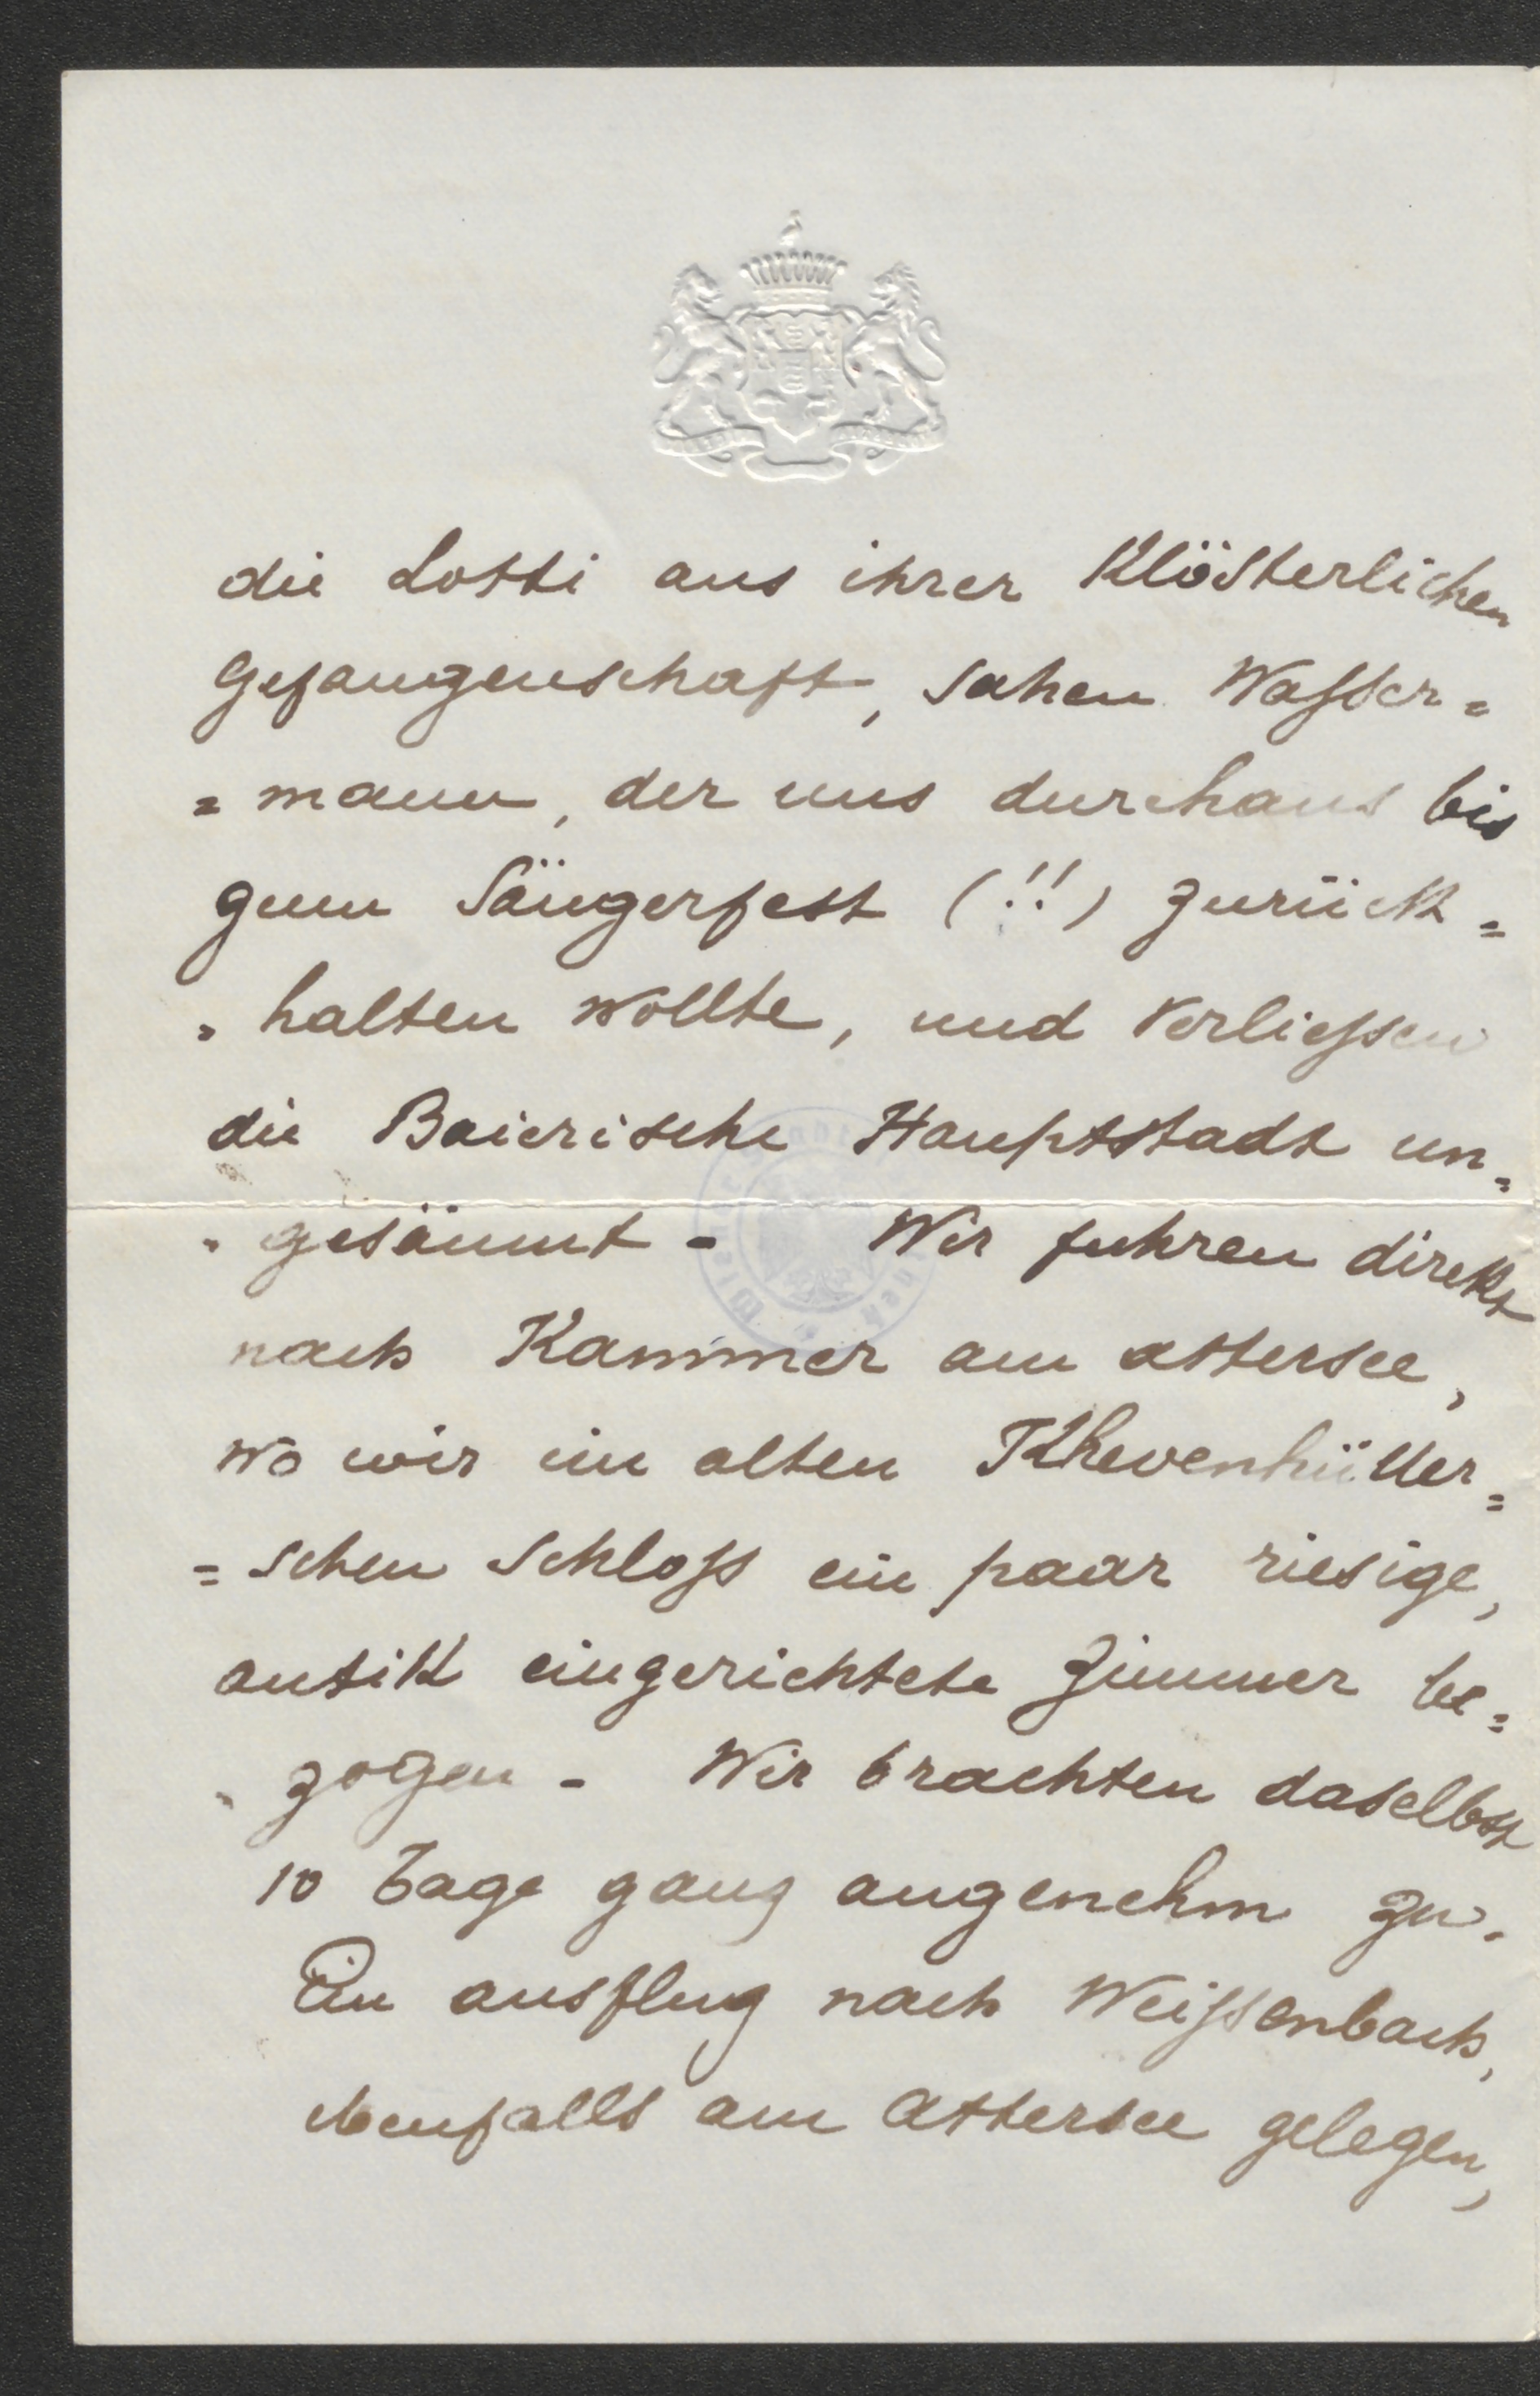 die Lotti aus ihrer Klösterlichen
Gefangenschaft, sahen Wasser=
=mann, der uns durchaus bis
zum Sängerfest (!!) zurück=
=halten wollte, und verliessen
die Baierische Hauptstadt un=
=gesäumt - Wir fuhren direkt
nach Kammer am Attersee,
wo wir im alten Khevenhüller=
=schen Schloss ein paar riesige,
antik eingerichtete Zimmer be=
=zogen - Wir brachten daselbst
10 Tage ganz angenehm zu.
Ein Ausflug nach Weissenbach,
ebenfalls am Attersee gelegen,